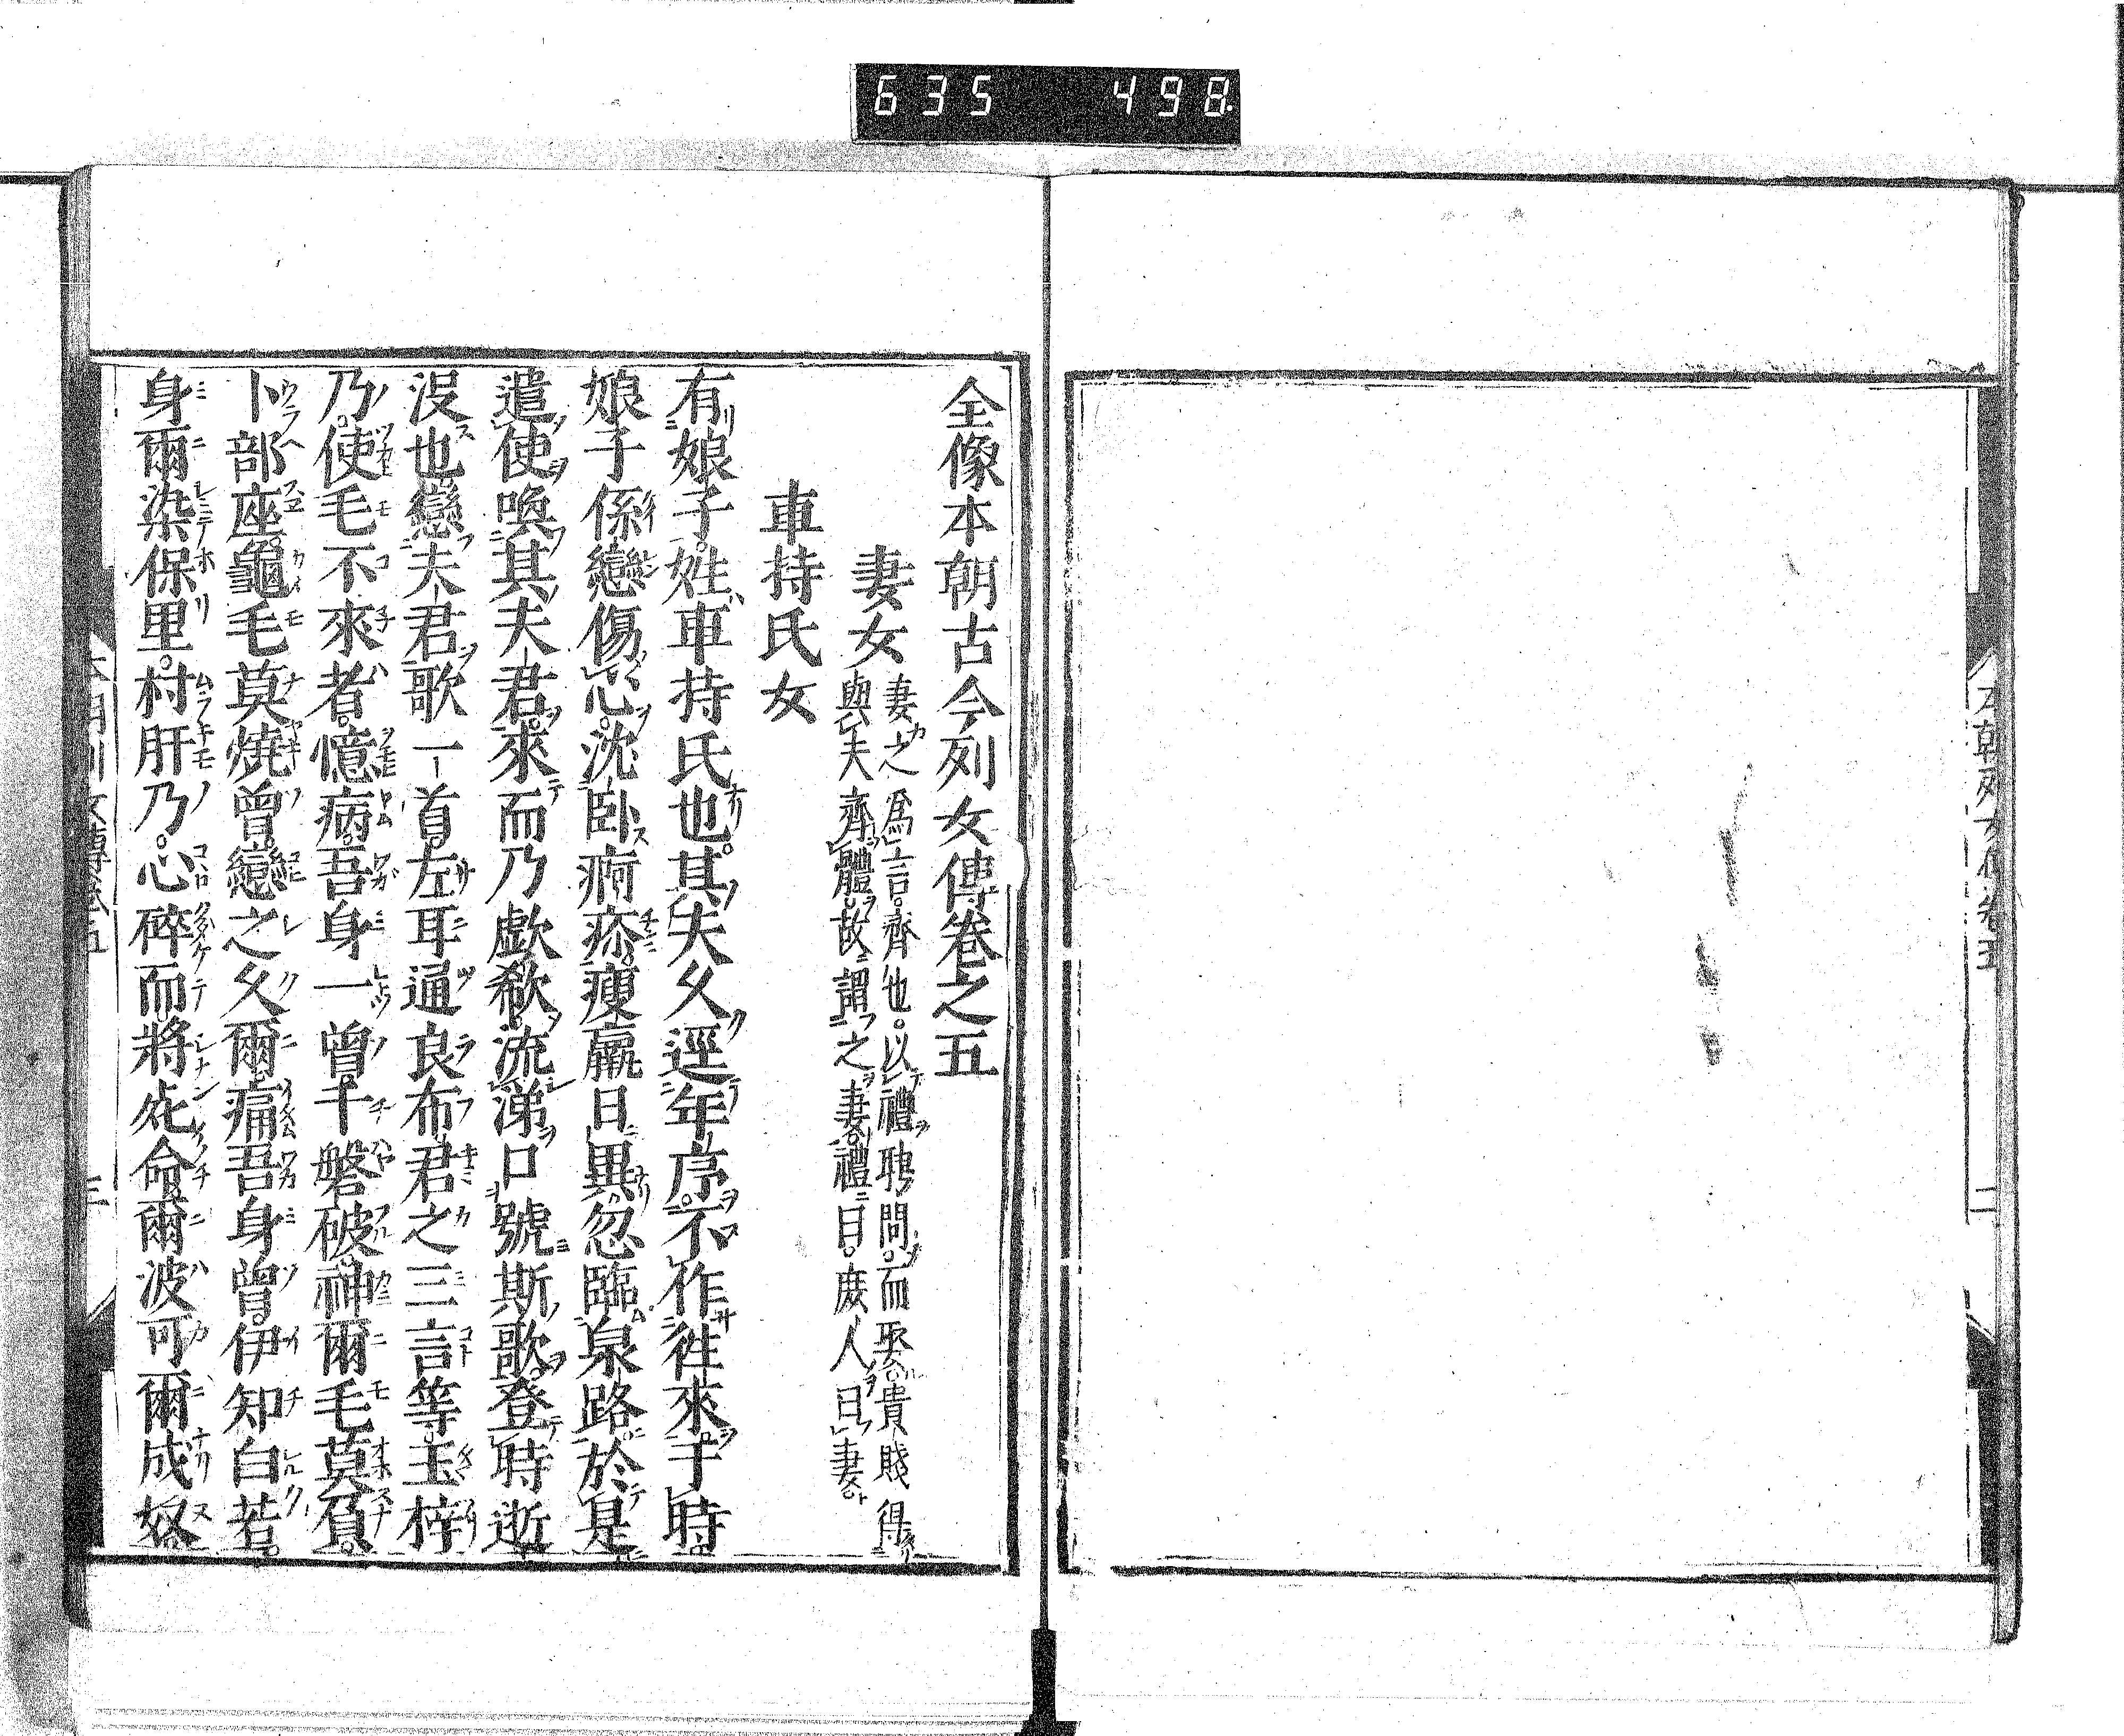 635 498
本朝列女傳卷五
二
全像本朝古今列女傳卷之五
妻女
妻之爲言齊也以禮聘問而娶貴賤得
與夫齊體故謂之妻禮曰庶人曰妻
車持氏女
有娘子姓車持氏也其夫久逕年序不作徃來于時
娘子係戀傷心沈卧痾疹瘦羸日異忽臨泉路於是
遣使喚其夫君來而乃歔欷流涕口號斯歌登時逝
没也戀夫君歌一首左耳通良布君之三言等玉梓
乃使毛不來者憶病吾身一曾千磐破神爾毛莫負
卜部座龜毛莫燒曾戀之久爾痛吾身曾伊知白苦
身爾染保里村肝乃心碎而將死命爾波可爾成奴